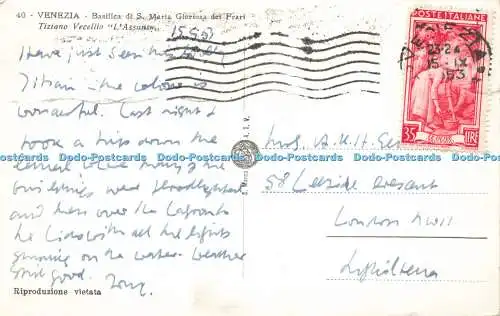 40 - VENEZIA - Basilica di S. Maria Gloriosa dei Frari
Tiziano Vecellio "L'Assunta"
15.9.53
I have just seen this by
Titian - the colour is
wonderful. Last night I
took a trip down the
canal
buildings were floodlighted
and then over the Lagoon to
the Lido with all the lights
shining on the water. Weather
still good. Tony.
Riproduzione vietata
POSTE ITALIANE
23-24
15 IX
195
35 LIRE
Mrs A.K.H.
58 Leeside Crescent
London NW11
Inghilterra
Dodo-Postcards Dodo-Postcards Dodo-Postcards Dodo-Postcards Dodo-Postcards Dodo-Postcards
Dodo-Postcards Dodo-Postcards Dodo-Postcards Dodo-Postcards Dodo-Postcards Dodo-Postcards